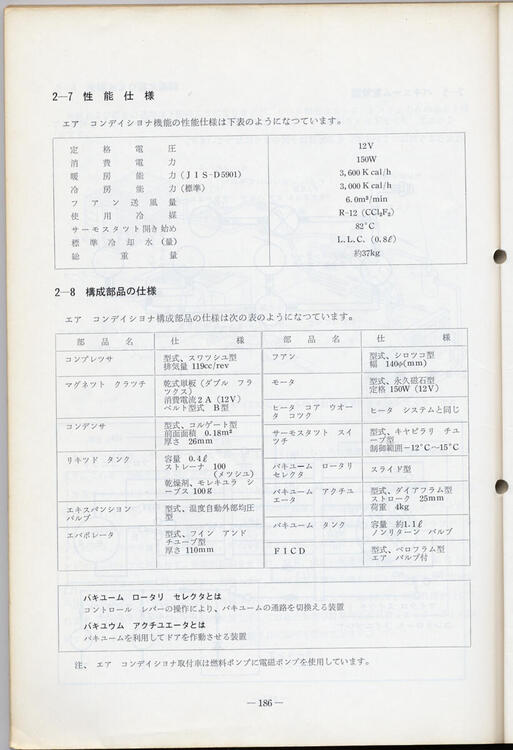 2—7 性能仕様
エア コンデイショナ機能の性能仕様は下表のようになつています。
定格電圧 12V
消費電力 150W
暖房能力(JIS-D5901) 3,600 Kcal/h
冷房能力(標準) 3,000 Kcal/h
フアン送風量 6.0m³/min
使用冷媒 R-12 (CCl₂F₂)
サーモスタツト開き始め 82°C
標準冷却水(量) L.L.C. (0.8ℓ)
総重量 約37kg
2—8 構成部品の仕様
エア コンデイショナ構成部品の仕様は次の表のようになつています。
部品名 仕様 部品名 仕様
コンプレツサ 型式、スワツシユ型
排気量 119cc/rev
マグネツト クラツチ 乾式単板(ダブル フラ
ツクス)
消費電流2A (12V)
ベルト型式 B型
コンデンサ 型式、コルゲート型
前面面積 0.18m²
厚さ 26mm
リキツド タンク 容量 0.4ℓ
ストレーナ 100
(メツシユ)
乾燥剤、モレキユラ シ
ーブス 100g
エキスパンシヨン
バルブ
型式、温度自動外部均圧
型
エバポレータ 型式、フイン アンド
チユーブ型
厚さ 110mm
フアン 型式、シロツコ型
幅 140φ(mm)
モータ 型式、永久磁石型
定格 150W (12V)
ヒータ コア ウオー
タ コツク
ヒータ システムと同じ
サーモスタツト スイ
ツチ
型式、キヤピラリ チユ
ーブ型
制御範囲-12°C~15°C
バキユーム ロータリ
セレクタ
スライド型
バキユーム アクチユ
エータ
型式、ダイアフラム型
ストローク 25mm
荷重 4kg
バキユーム タンク 容量 約1.1ℓ
ノンリターン バルブ
FICD 型式、ベロフラム型
エア バルブ付
バキユーム ロータリ セレクタとは
コントロール レバーの操作により、バキユームの通路を切換える装置
バキユウム アクチユエータとは
バキユームを利用してドアを作動させる装置
注、エア コンデイショナ取付車は燃料ポンプに電磁ポンプを使用しています。
—186—